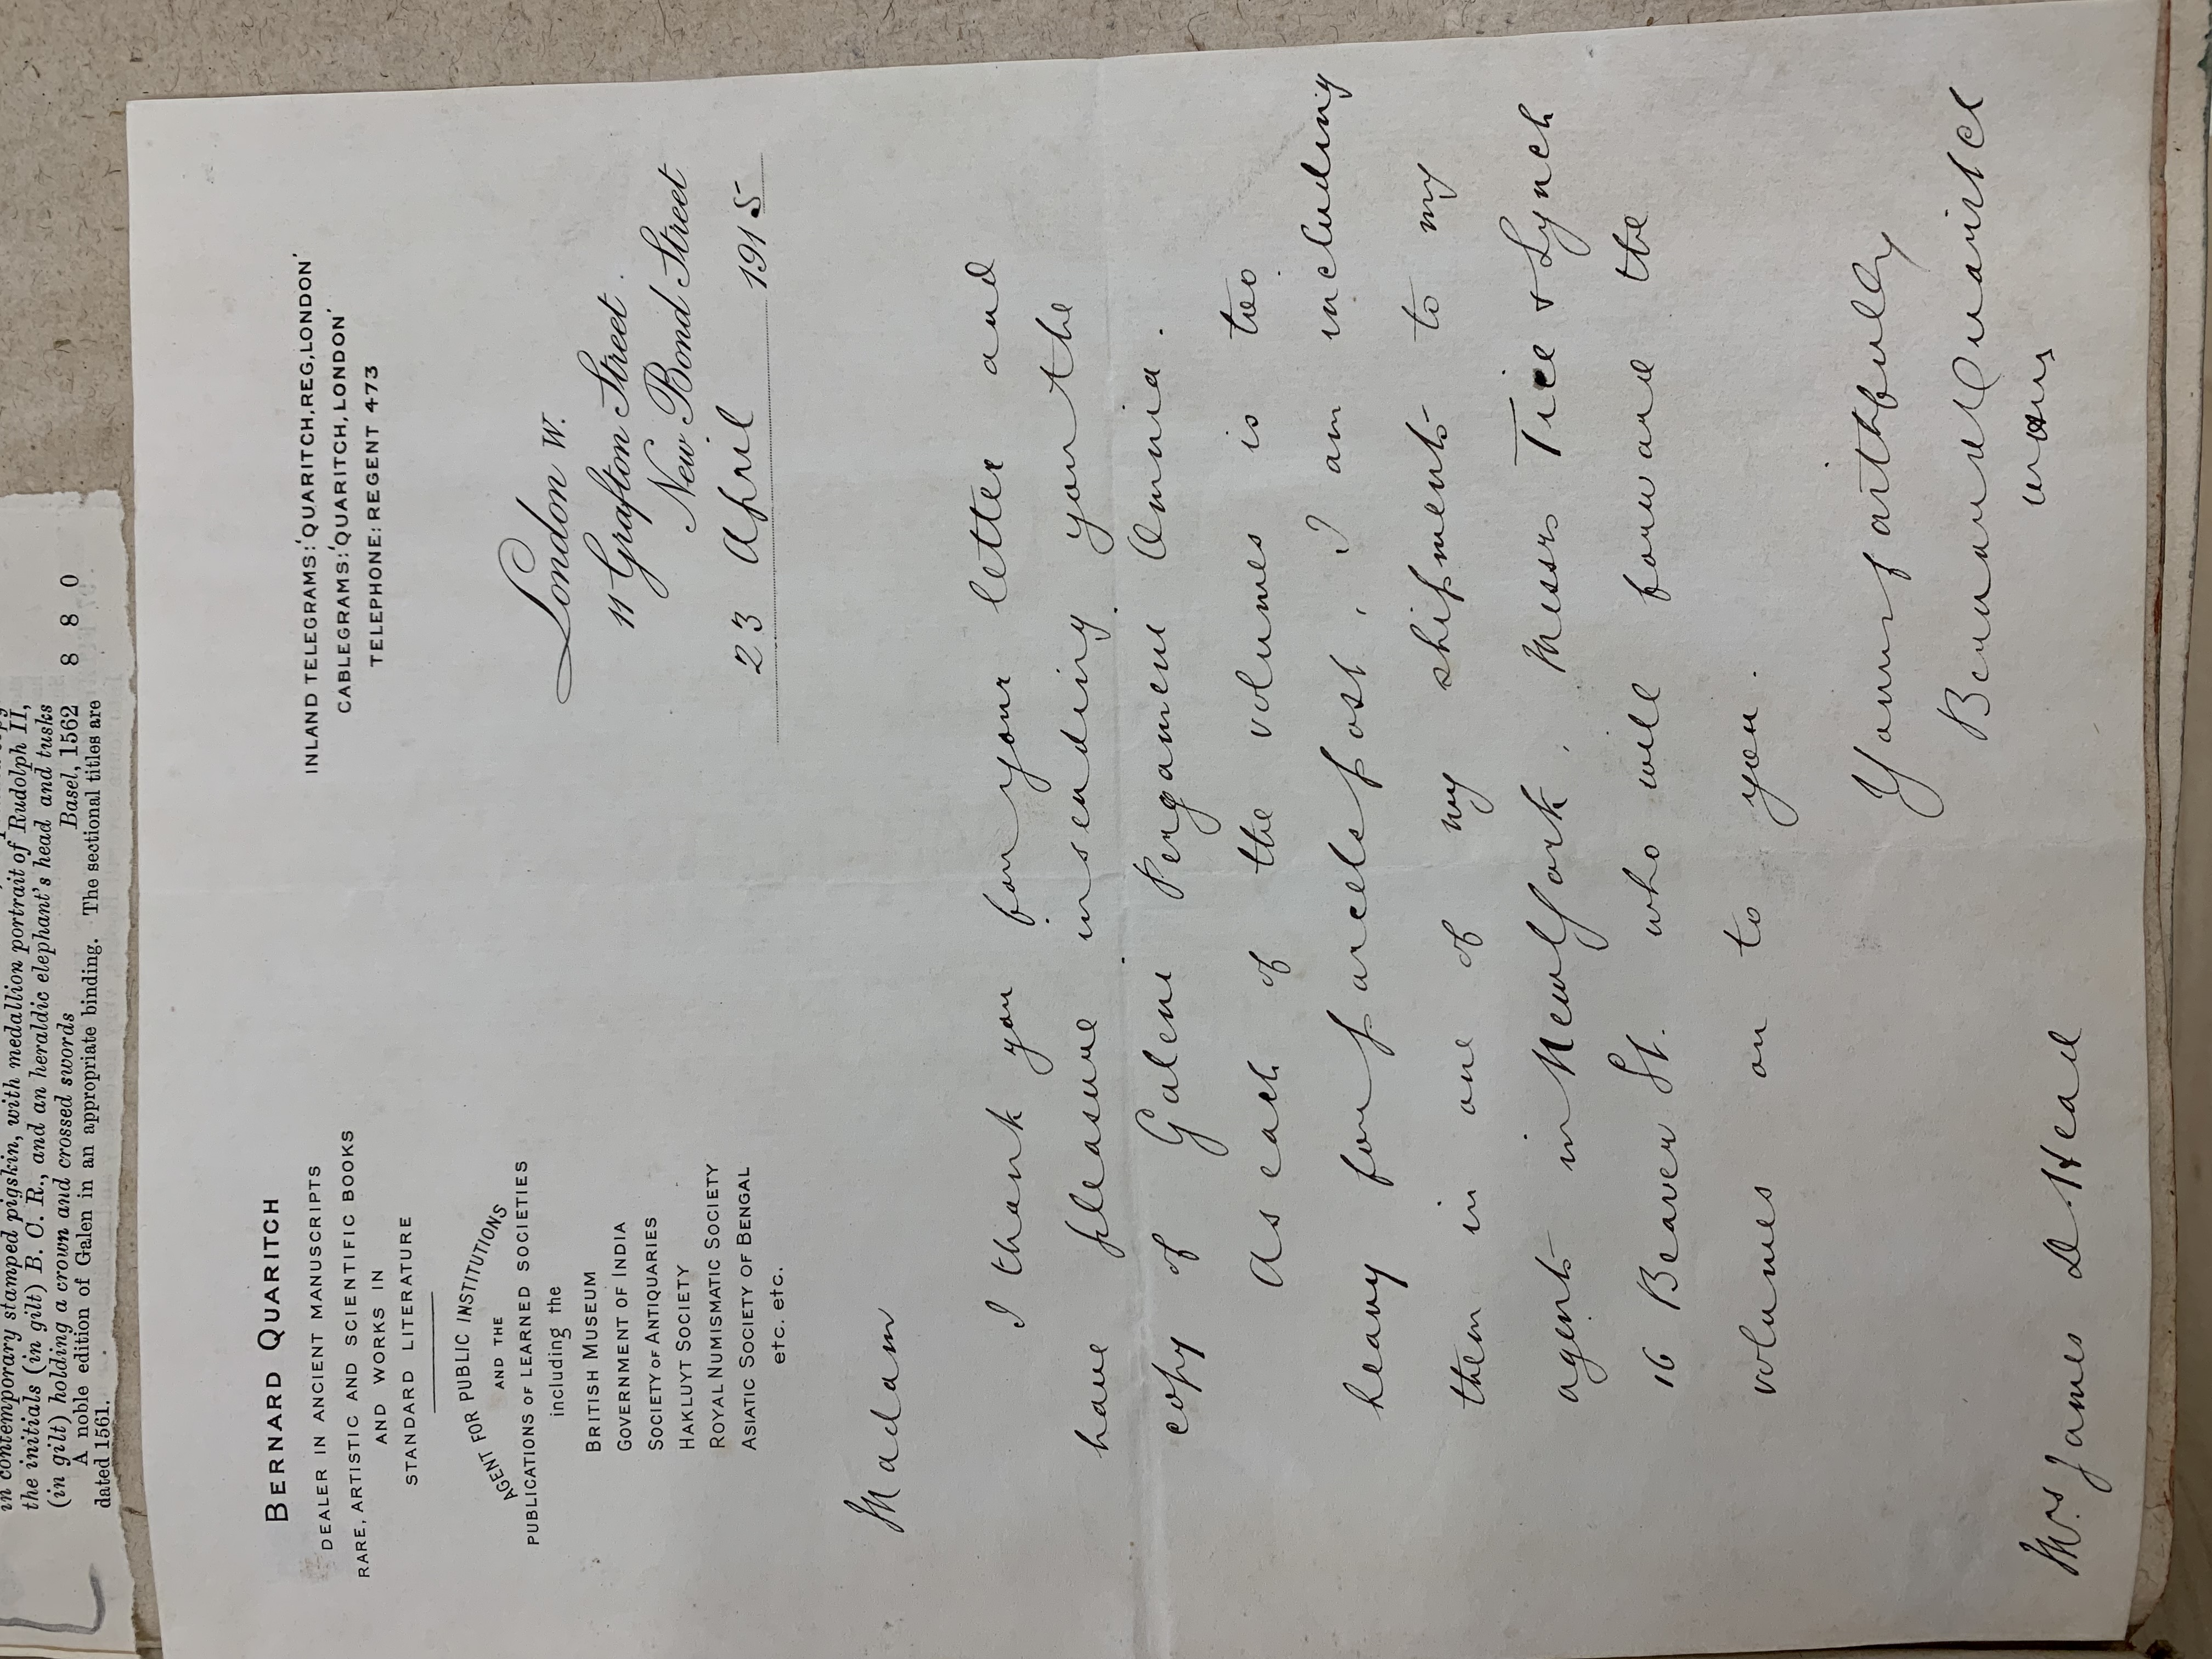 in contemporary stamped pigskin, with medallion portrait of Rudolph II,
the initials (in gilt) B. C. R., and an heraldic elephant's head and tusks
(in gilt) holding a crown and crossed swords Basel, 1562 8 8 0
A noble edition of Galen in an appropriate binding. The sectional titles are
dated 1561.
BERNARD QUARITCH
DEALER IN ANCIENT MANUSCRIPTS
RARE, ARTISTIC AND SCIENTIFIC BOOKS
AND WORKS IN
STANDARD LITERATURE
AGENT FOR PUBLIC INSTITUTIONS
AND THE
PUBLICATIONS OF LEARNED SOCIETIES
including the
BRITISH MUSEUM
GOVERNMENT OF INDIA
SOCIETY OF ANTIQUARIES
HAKLUYT SOCIETY
ROYAL NUMISMATIC SOCIETY
ASIATIC SOCIETY OF BENGAL
etc. etc.
INLAND TELEGRAMS:'QUARITCH,REG,LONDON'
CABLEGRAMS:'QUARITCH,LONDON'
TELEPHONE: REGENT 473
London W.
11 Grafton Street.
New Bond Street
23 April 1915
Madam
I thank you for your letter and
have pleasure in sending you the
copy of Galeni Pergameni Omnia.
As each of the volumes is too
heavy for parcels post, I am including
them in one of my shipments to my
agents in New York, Messrs Tice & Lynch
16 Beaver St. who will forward the
volumes on to you.
Yours faithfully
Bernard Quaritch
Mrs James D Head